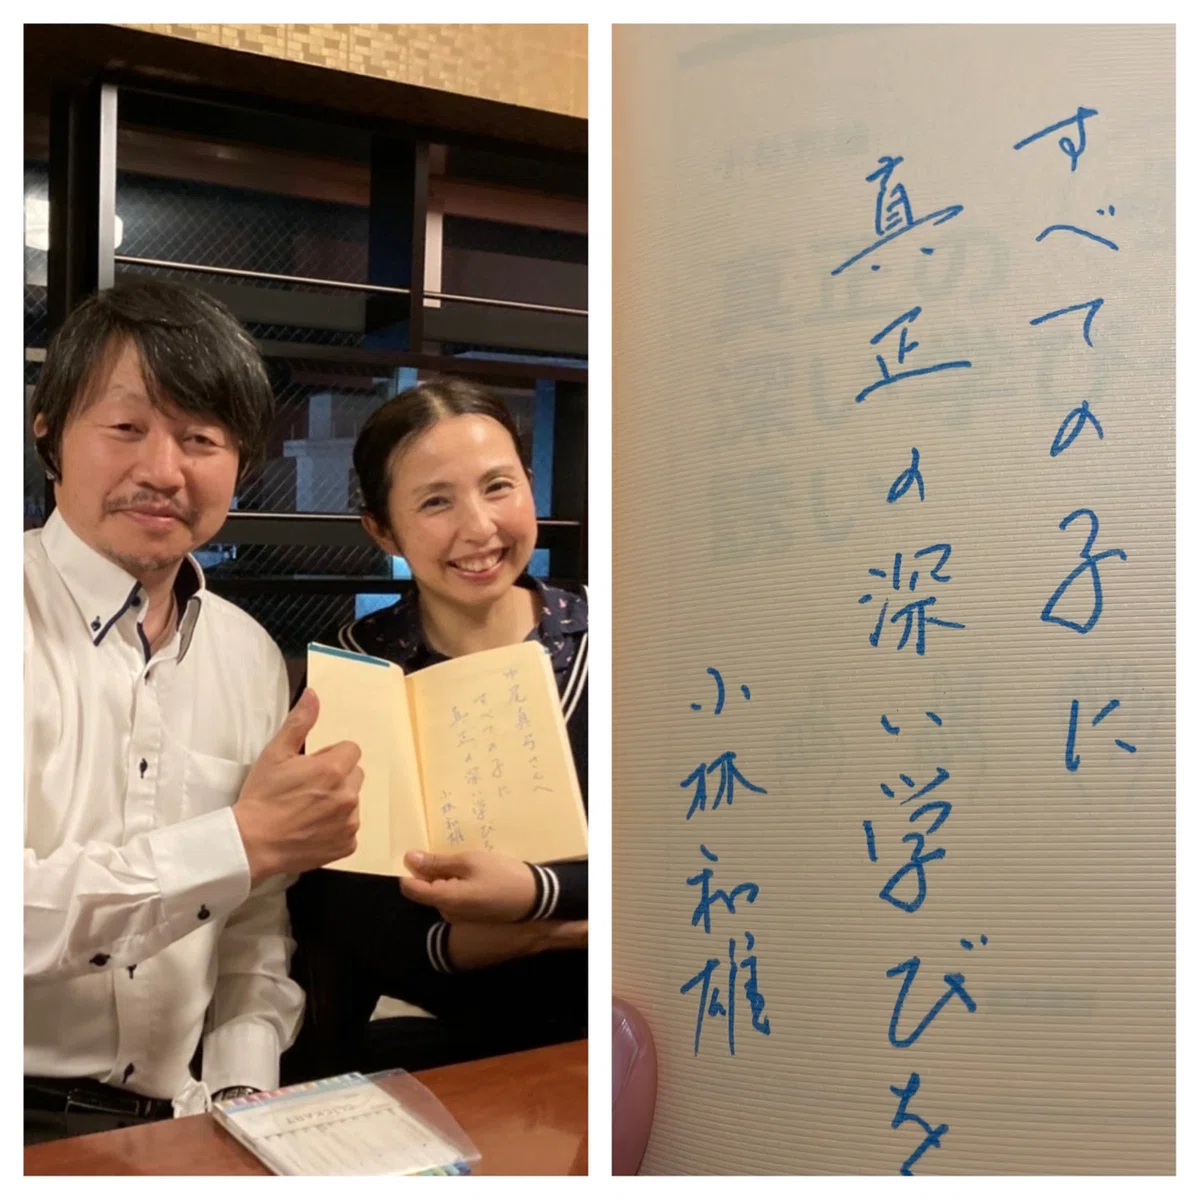 中尾真弓さんへ
すべての子に
真正の深い学びを
小林和雄
CLICKART
すべての子に
真正の深い学びを
小林和雄